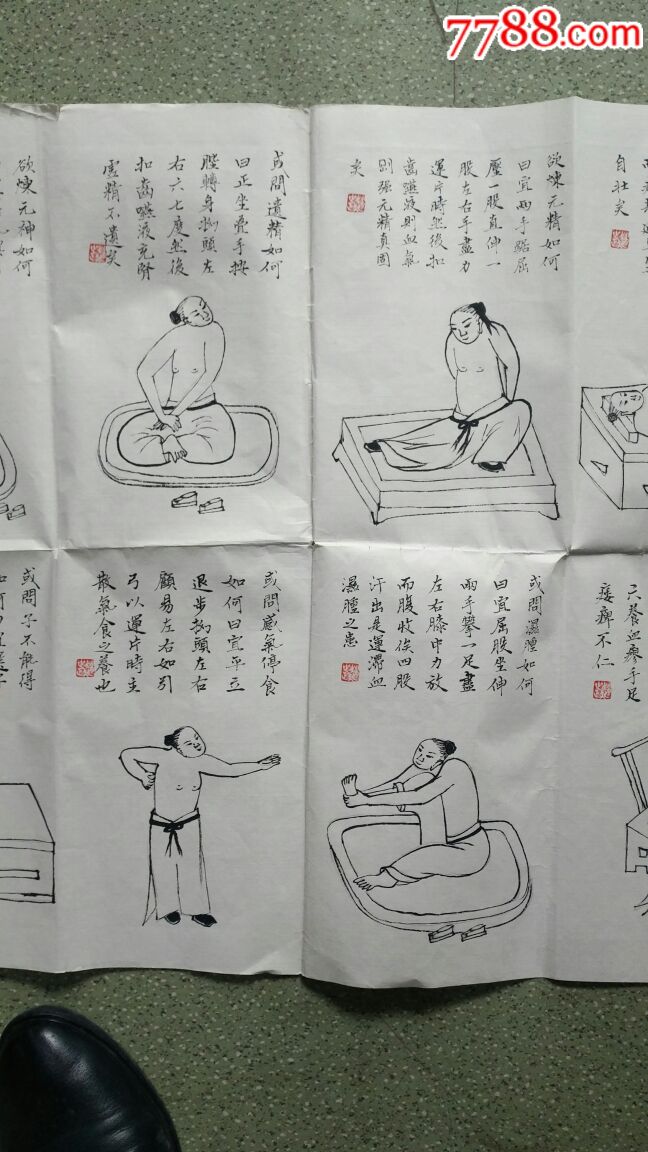 7788.com
自壯矣
欲煉元精如何
曰宜兩手踞屈
壓一股直伸一
股左右手盡力
運片時然後扣
齒嚥液則血氣
則張元精真固
矣
或問遺精如何
曰正坐疊手按
膛轉身拗頭左
右六七度然後
扣齒嚥液充腎
虛精不遺矣
欲煉元神如何
養血廖手足
痿痺不仁
或問濕腫如何
曰宜屈股坐伸
兩手攀一足盡
左右膝中力放
而腹收俟四股
汗出是運滯血
濕腫之患
或問感氣停食
如何曰宜平立
退步拗頭左右
顧易左右如引
弓以運片時主
散氣食之養也
或問子不能得